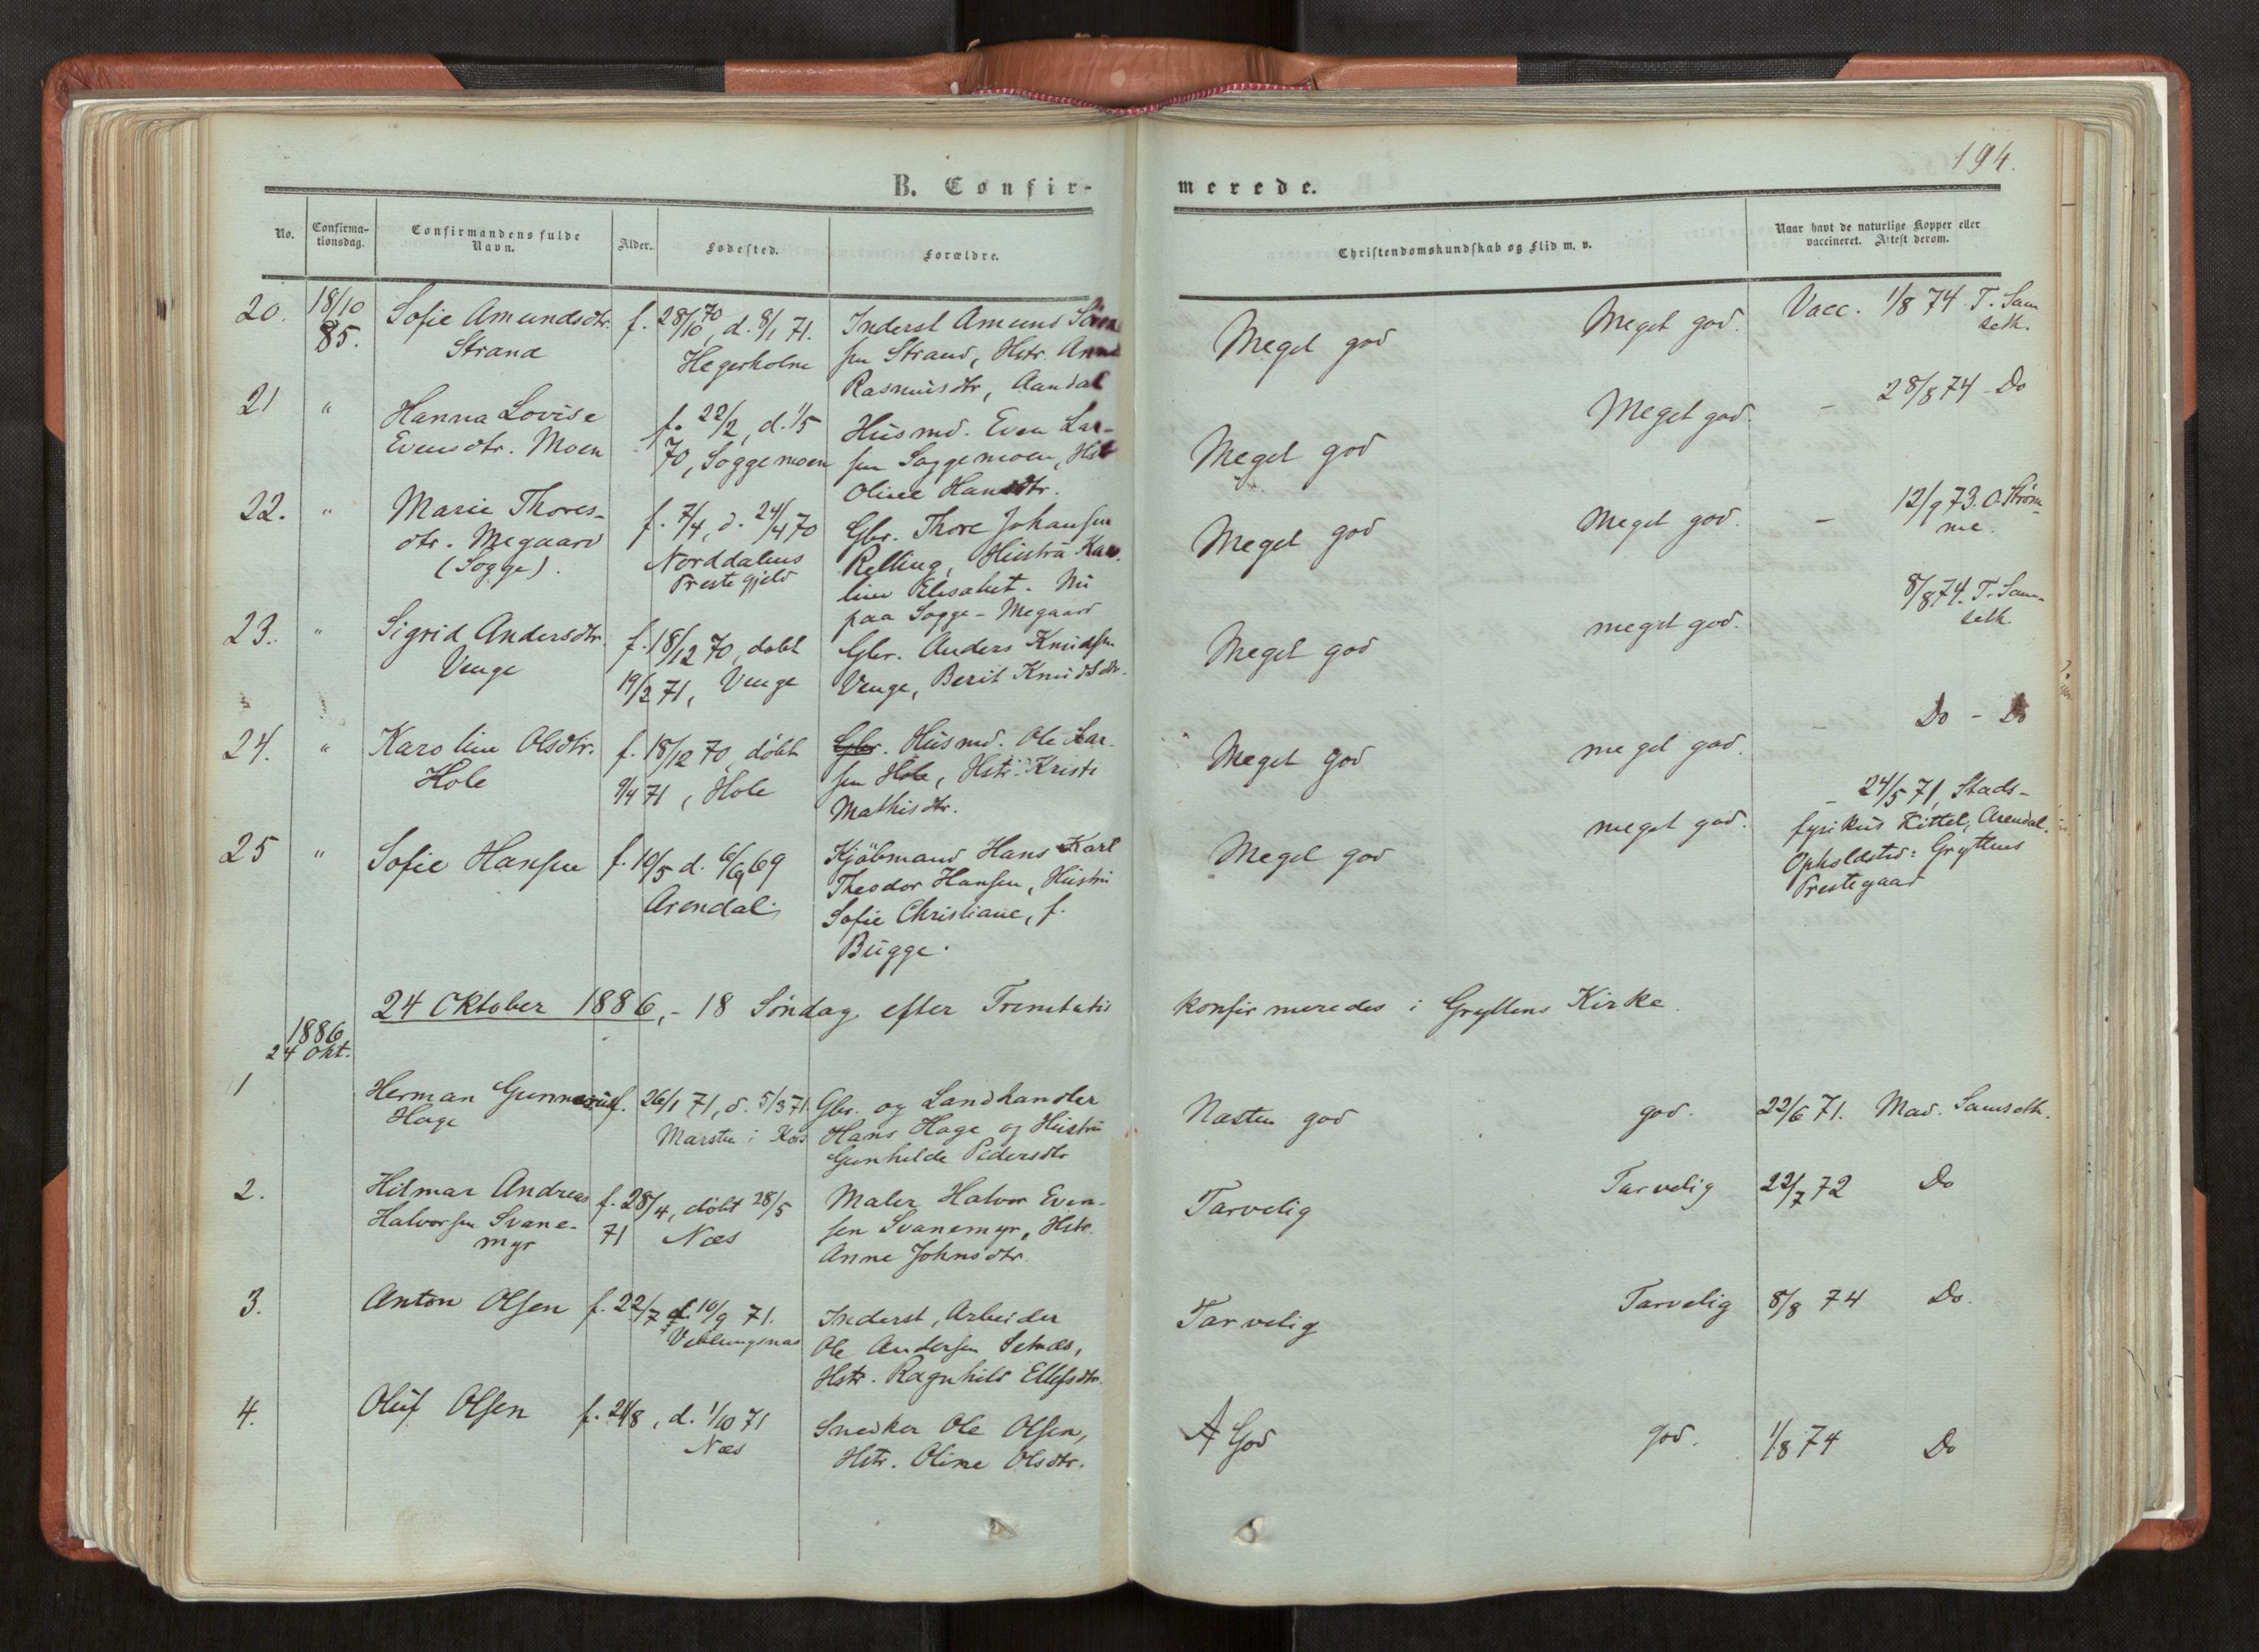 194.
B. Confirmerede.
No. Confirmationsdag. Confirmandens fulde Navn. Alder. Fødested. Forældre. Christendomskundskab og Flid m. v. Naar havt de naturlige Kopper eller vaccineret. Attest derom.
20. 18/10 85. Sofie Amundsdtr. f. 28/10 70, d. 8/1 71. Inderst Amund Søren- Meget god Meget god. Vacc. 1/8 74 T. Sam
Strand Hegerholm sen Strand, Hstr. Anne seth.
Rasmusdtr, Aandal
21 " Hanna Lovise f. 22/2, d. 1/5 Husmd. Even Lar- Meget god Meget god. – 28/8 74 – Do
Evensdtr. Moen 70, Soggemoen sen Soggemoen, Hstr
Oline Hansdtr.
22. " Marie Thores- f. 7/4, d. 24/4 70 Gbr. Thore Johansen Meget god Meget god. – 12/9 73. O. Strøm-
dtr. Megaard Norddalens Relling, Hustru Karo- me.
(Sogge). Prestegjeld line Elisabet. Nu
paa Sogge – Megaard
23. " Sigrid Andersdtr. f. 18/12 70, døbt Gbr. Anders Knudsen Meget god meget god. 8/8 74. T. Sam-
Venge 19/2 71, Venge Venge, Berit Knudsdtr. seth.
24. " Karoline Olsdtr. f. 18/12 70, døbt Gbr. Husmd. Ole Lar- Meget god meget god. – Do – Do
Hole 9/4 71, Hole sen Hole, Hstr. Kristi
Mathisdtr.
25 " Sofie Hansen f. 10/5 d. 6/9 69 Kjøbmand Hans Karl Meget god meget god. – 24/5 71, Stads-
Arendal. Theodor Hansen, Hustru fysikus Kittel, Arendal.
Sofie Christiane, f. Opholdsted: Gryttens
Bugge. Prestegaard
24 Oktober 1886, – 18 Søndag efter Trinitatis konfirmeredes i Gryttens Kirke.
1886
24 Okt.
1 Herman Gunnerius f. 26/1 71, d. 5/3 71 Gbr. og Landhandler Næsten god god. 22/6 71. Mad. Samseth.
Hage Marsten i Kors Hans Hage og Hustru
Gunhilde Pedersdtr
2. Hilmar Andreas f. 28/4, døbt 28/5 Maler Halvor Even- Tarvelig Tarvelig 22/7 72 Do
Halvorsen Svane- 71 Næs sen Svanemyr, Hstr.
myr Anne Johnsdtr.
3. Anton Olsen f. 22/7 d. 10/9 71. Inderst, Arbeider Tarvelig Tarvelig 8/8 74 Do.
Veblungsnæs Ole Andersen Setnæs,
Hstr. Ragnhild Ellefsdtr.
4. Oluf Olsen f. 24/8, d. 1/10 71 Snedker Ole Olsen, God god. 1/8 74 Do
Næs Hstr. Oline Olsdtr.